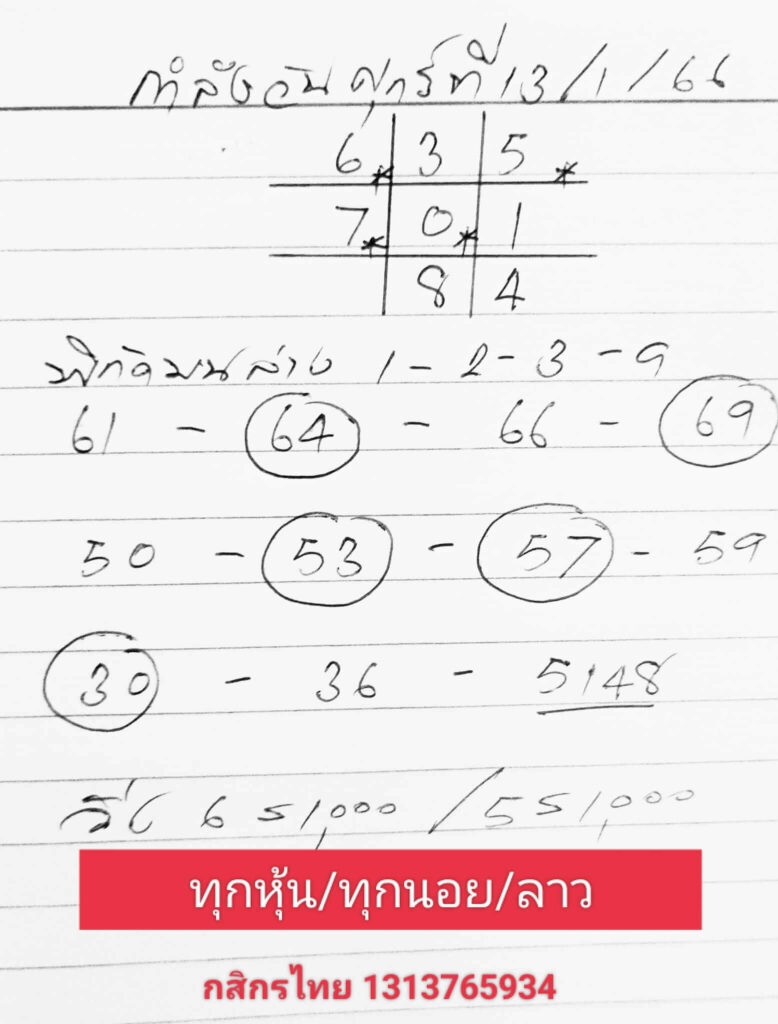 กำลังวันศุกร์ที่ 13/1/66
6* 3 5*
7* 0* 1
8 4
พิกัดบนล่าง 1-2-3-9
61 - 64 - 66 - 69
50 - 53 - 57 - 59
30 - 36 - 5148
วิ่ง 6 51,000 / 5 51,000
ทุกหุ้น/ทุกนอย/ลาว
กสิกรไทย 1313765934